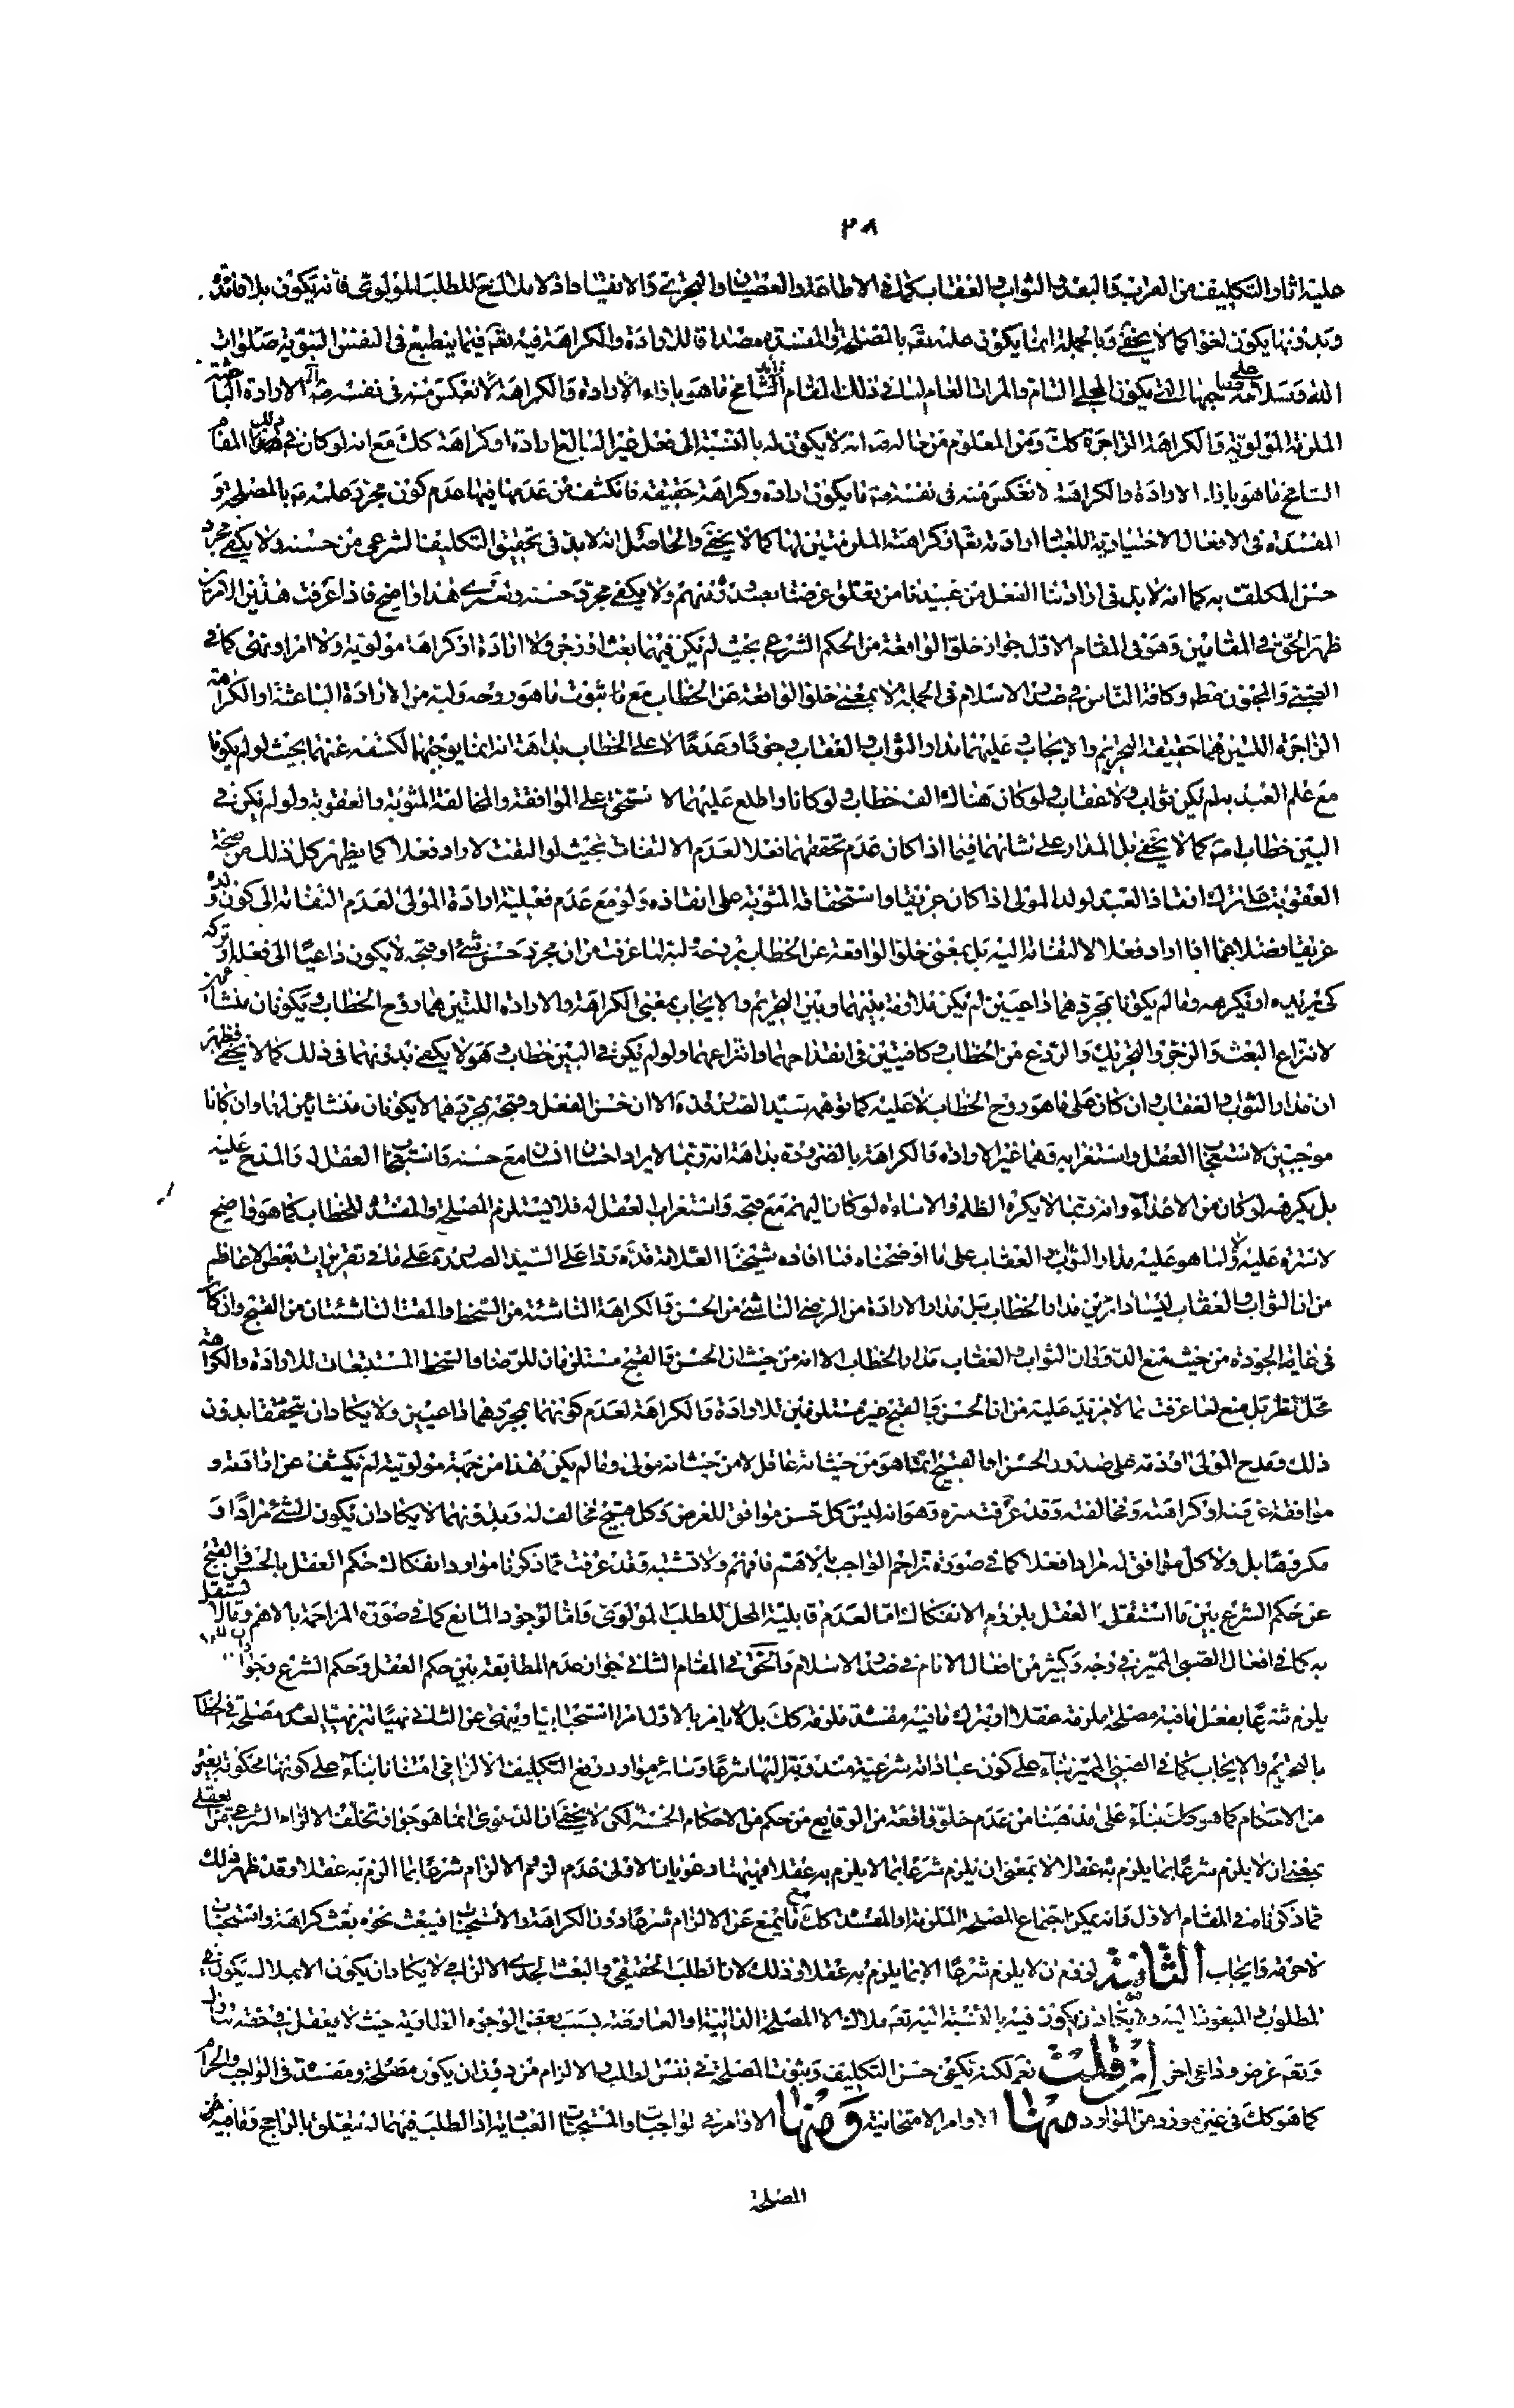 ٣٨
عليه اثار التكليف من القرب والبعد والثواب والعقاب كما فى الاطاعة والعصيان والتجرى والانقياد اذ لا ملاك ح للطلب المولوى فانه يكون بلا فائدة
وبدونها يكون لغوا كما لا يخفى وبالجملة انما يكون علمه تعم بالمصلحة والمفسدة مصداقا للارادة والكراهة فيه تعم فيما ينطبع فى النفس النبوية صلوات
الله وسلامه على صاحبها التى يكون المجلى التام والمرات العام لسائر ذلك المقام الشامخ ما هو بازاء الارادة والكراهة لانعكس منه فى نفسه الارادة الباعثة
الملزمة المولوية والكراهة الزاجرة كك ومن المعلوم من حاله انه لا يكون له بالنسبة الى فعل غير البالغ ارادة او كراهة كك مع انه لو كان فى ذلك المقام
الشامخ ما هو بازاء الارادة والكراهة لانعكس منه فى نفسه ما يكون ارادة وكراهة حقيقة فانكشف من عدمها فيها عدم كون مجرد علمه بالمصلحة و
المفسدة فى الافعال الاختيارية للعباد ارادته تعم او كراهته الملزمتين لها كما لا يخفى والحاصل انه لا بد فى تحقيق التكليف الشرعى من حسنه ولا يكفى مجرد
حسن المكلف به كما انه لا بد فى ارادتنا الفعل من عبيدنا من تعلق غرضنا بصدوره منهم ولا يكفى مجرد حسنه ولعمرى هذا واضح فاذا عرفت هذين الامرين
ظهر الحق فى المقامين وهو فى المقام الاول جواز خلو الواقعة من الحكم الشرعى بحيث لم يكن فيهما بعث او زجر ولا ارادة او كراهة مولوية ولا امر او نهى كما فى
الصبى والمجنون مطلقا وكافة الناس فى صدر الاسلام فى الجملة لا بمعنى خلو الواقعة عن الخطاب مع ثبوت ما هو روحه ولبه من الارادة الباعثة او الكراهة
الزاجرة اللتين هما حقيقة التحريم والايجاب وعليهما مدار الثواب والعقاب وجودا وعدما لا على الخطاب بداهة انه انما يوجبهما لكشفه عنهما بحيث لو لم يكونا
مع علم العبد به لم يكن ثواب ولا عقاب ولو كان هناك الف خطاب ولو كانا واطلع عليهما لاستحق على الموافقة والمخالفة المثوبة والعقوبة ولو لم يكن فى
البين خطاب كما لا يخفى بل المدار على شانهما فيما اذا كان عدم تحققهما فعلا لعدم الالتفات بحيث لو التفت لاراد فعلا كما يظهر كل ذلك من صحة
العقوبة على ترك انقاذ العبد لولد المولى اذا كان غريقا واستحقاقه المثوبة على انقاذه ولو مع عدم فعلية ارادة المولى لعدم التفاته الى كون ولده
غريقا فضلا عما اذا اراد فعلا لالتفاته اليه بل بمعنى خلو الواقعة عن الخطاب بروحه ولبه لما عرفت من ان مجرد حسن شئ او قبحه لا يكون داعيا الى فعله او تركه
كى يريده او يكرهه وما لم يكونا بمجردهما داعيين لم يكن ملازمة بينهما وبين التحريم والايجاب بمعنى الكراهة والارادة اللتين هما روح الخطاب ويكونان منشأ
لانتزاع البعث والزجر والتحريك والردع من الخطاب وكافيتين فى انقداحهما وانتزاعهما ولو لم يكن فى البين خطاب وهو لا يكفى بدونهما فى ذلك كما لا يخفى فظهر
ان مدار الثواب والعقاب وان كان على ما هو روح الخطاب لا عليه كما توهمه سيد الصدر قده الا ان حسن الفعل وقبحه بمجردهما لا يكونان منشائين لهما وان كانا
موجبين لاستعجاب العقل واستغرابه وهما غير الارادة والكراهة بالضرورة بداهة انه ربما لا يراد احسان انسان مع حسنه واستعجاب العقل له والمدح عليه
بل يكرهه لو كان من الاعداء وانه ربما لا يكره الظلم والاساءة لو كانا اليهم مع قبحه واستغراب العقل له فلا يستلزم المصلحة والمفسدة للخطاب كما هو واضح
لا سترة عليه ولا لما هو عليه مدار الثواب والعقاب على ما اوضحناه فما افاده شيخنا العلامة قده ردا على السيد الصدر ره على ما فى تقريرات بعض الاعاظم
من ان الثواب والعقاب ليسا دائرين مدار الخطاب بل مدار الارادة من الرضى الناشئ من الحسن والكراهة الناشئة من السخط والمقت الناشئتان من القبح وان كان
فى غاية الجودة من حيث منع الدوران الثواب والعقاب مدار الخطاب الا انه من حيث ان الحسن والقبح مستلزمان للرضا والسخط المستتبعات للارادة والكراهة
محل نظر بل منع لما عرفت بما لا مزيد عليه من ان الحسن والقبح غير مستلزمين للارادة والكراهة لعدم كونهما بمجردهما داعيين ولا يكادان يتحققا بدون
ذلك ومدح المولى او ذمه على صدور الحسن او القبيح انما هو من حيث انه عاقل لا من حيث انه مولى وما لم يكن هذا من جهة مولويته لم يكشف عن ارادته و
موافقة غرضه او كراهته ومخالفته وقد عرفت سره وهو انه ليس كل حسن موافق للغرض وكل قبيح مخالف له وبدونهما لا يكاد ان يكون الشئ مرادا و
مكروها بل ولا كل موافق له مرادا فعلا كما فى صورة تزاحم الواجب بالاهم فافهم ولا تشتبه وقد عرفت مما ذكرنا موارد انفكاك حكم العقل بالحسن والقبح
عن حكم الشرع بين ما استقل العقل بلزوم الانفكاك اما لعدم قابلية المحل للطلب المولوى واما لوجود المانع كما فى صورة المزاحمة بالاهم وما لا يستقل
به كما فى افعال الصبى المميز فى وجه وكثير من افعال الانام فى صدر الاسلام والحق فى المقام الثانى جواز عدم المطابقة بين حكم العقل وحكم الشرع وجواز ان لا
يلزم شرعا بفعل ما فيه مصلحة ملزمة عقلا او بترك ما فيه مفسدة ملزمة كك بل لا يامر بالاول امرا استحبابيا وينهى عن الثانى نهيا تنزيهيا لعدم مصلحة فى الخطاب
بالتحريم والايجاب كما فى الصبى المميز بناء على كون عباداته شرعية مندوبة اليها شرعا وسائر موارد رفع التكليف الالزامى امتنانا بناء على كونها محكومة بغيره
من الاحكام كما هو كك بناء على مذهبنا من عدم خلو واقعة من الوقايع من حكم من الاحكام الخمسة لكن لا يخفى ان الدعوى انما هو جواز تخلف الالزام الشرعى عن العقلى
بمعنى ان لا يلزم شرعا بما يلزم به عقلا لا بمعنى ان يلزم شرعا بما لا يلزم به عقلا فههنا دعويان الاولى عدم لزوم الالزام شرعا بما الزم به عقلا وقد ظهر ذلك
مما ذكرناه فى المقام الاول وانه يمكن اجتماع المصلحة الملزمة او المفسدة كك مع ما يمنع عن الالزام شرعا دون الكراهة والاستحباب فيبعث نحوه بعث كراهة واستحباب
لا حرمة وايجاب الثانية لزوم ان لا يلزم شرعا الا بما يلزم به عقلا وذلك لان الطلب الحقيقى والبعث الجدى الالزامى لا يكاد ان يكون الا بملاك يكون فى
المطلوب والمبعوث اليه ولا يكاد ان يكون فيه بالنسبة اليه تعم ملاك الا المصلحة الذاتية او العارضة بسبب بعض الوجوه الطارية حيث لا يعقل فى حقه تبارك
وتعم غرض وداعى اخر ان قلت نعم لكنه يكفى حسن التكليف وثبوت المصلحة فى نفس الطلب والالزام من دون ان يكون مصلحة ومفسدة فى الواجب والحرام
كما هو كك فى غير مورد من الموارد منها الاوامر الامتحانية ومنها الاوامر فى الواجبات والمستحبات العبادية اذ الطلب فيهما لم يتعلق بالراجح وما فيه من
المصلحة